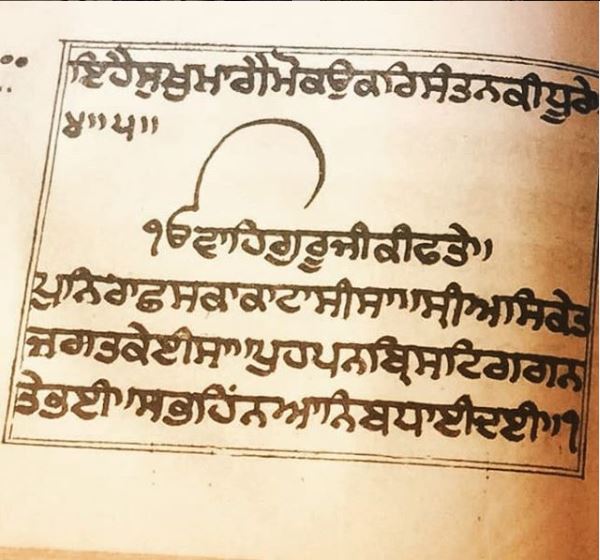 ਇਹੈ ਸੁਖੁ ਮਾਗੈ ਮੋ ਕਉ ਕਰਿ ਸੰਤਨ ਕੀ ਧੂਰੇ
੪॥੫॥
ੴ ਵਾਹਿਗੁਰੂ ਜੀ ਕੀ ਫਤੇ॥
ਪੁਨਿ ਰਾਛਸ ਕਾ ਕਾਟਾ ਸੀਸਾ॥ ਸ੍ਰੀ ਅਸਿਕੇਤ
ਜਗਤ ਕੇ ਈਸਾ॥ ਪੁਹਪਨ ਬ੍ਰਿਸਟਿ ਗਗਨ
ਤੇ ਭਈ॥ ਸਭਹਿੰਨ ਆਨਿ ਬਧਾਈ ਦਈ॥੧